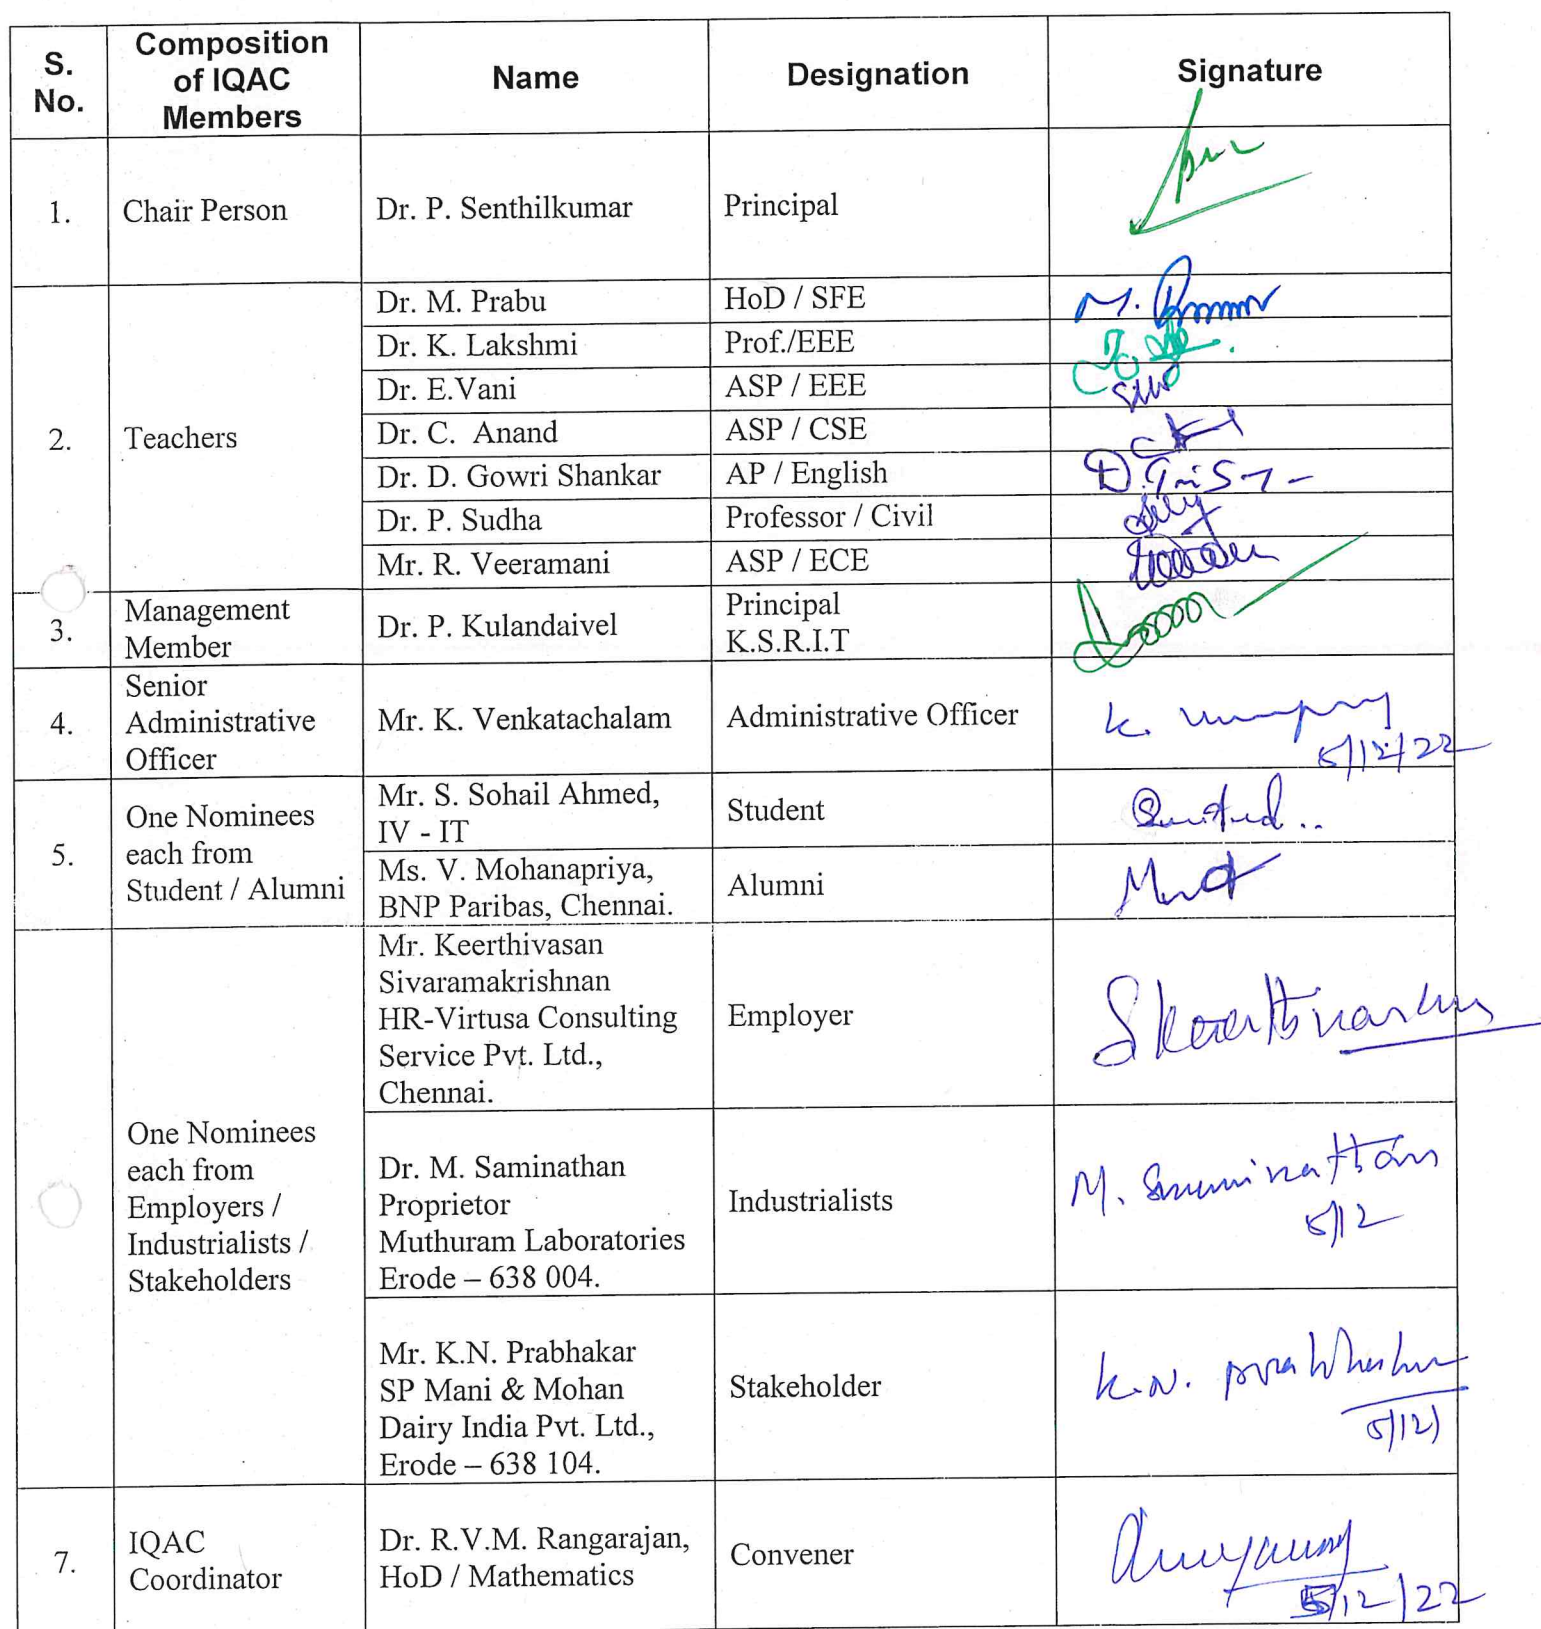 S. No.
Composition of IQAC Members
Name
Designation
Signature
1.
Chair Person
Dr. P. Senthilkumar
Principal
2.
Teachers
Dr. M. Prabu
HoD / SFE
Dr. K. Lakshmi
Prof./EEE
Dr. E.Vani
ASP / EEE
Dr. C. Anand
ASP / CSE
Dr. D. Gowri Shankar
AP / English
Dr. P. Sudha
Professor / Civil
Mr. R. Veeramani
ASP / ECE
3.
Management
Member
Dr. P. Kulandaivel
Principal
K.S.R.I.T
4.
Senior
Administrative
Officer
Mr. K. Venkatachalam
Administrative Officer
K.
5/12/22
5.
One Nominees
each from
Student / Alumni
Mr. S. Sohail Ahmed,
IV - IT
Student
Ms. V. Mohanapriya,
BNP Paribas, Chennai.
Alumni
One Nominees
each from
Employers /
Industrialists /
Stakeholders
Mr. Keerthivasan
Sivaramakrishnan
HR-Virtusa Consulting
Service Pvt. Ltd.,
Chennai.
Employer
Dr. M. Saminathan
Proprietor
Muthuram Laboratories
Erode – 638 004.
Industrialists
M. Saminathan
5/12
Mr. K.N. Prabhakar
SP Mani & Mohan
Dairy India Pvt. Ltd.,
Erode – 638 104.
Stakeholder
K.N. Prabhakar
5/12/
7.
IQAC
Coordinator
Dr. R.V.M. Rangarajan,
HoD / Mathematics
Convener
5/12/22